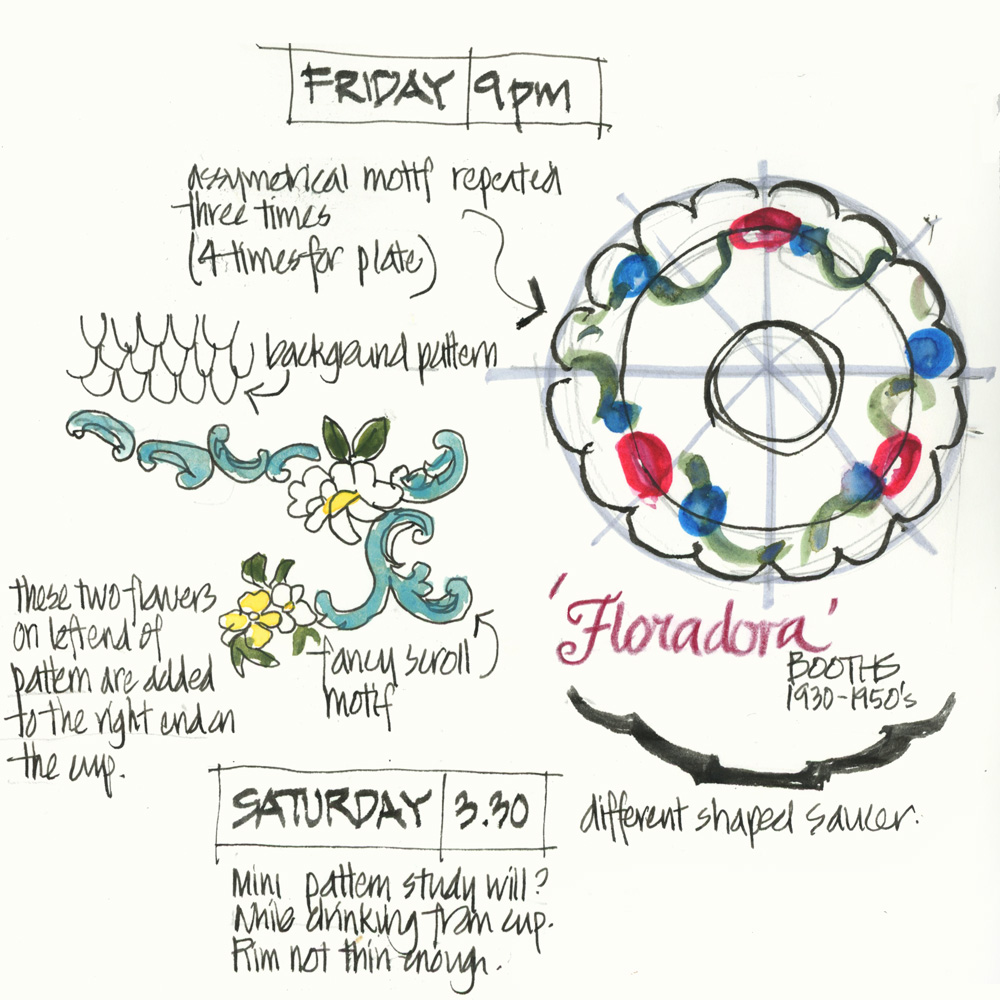 FRIDAY 9pm
assymetrical motif repeated
three times
(4 times for plate)
background pattern
these two flowers
on left end of
pattern are added
to the right end on
the cup.
fancy scroll
motif
'Floradora'
BOOTHS
1930-1950's
different shaped saucer.
SATURDAY 3.30
Mini pattern study will?
While drinking from cup.
Rim not thin enough.